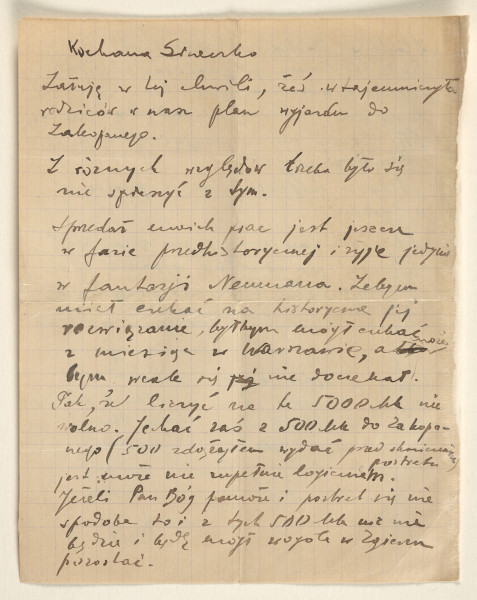 Kochana
Żałuję w tej chwili, żeś wtajemniczyła
rodziców w nasz plan wyjazdu do
Zakopanego.
Z różnych względów trzeba było się
nie spieszyć z tym.
Sprzedaż moich prac jest jeszcze
w fazie przedhistorycznej i żyje jedynie
w fantazji Neumana. Żebym
miał czekać na historyczne jej
rozwiązanie, byłbym mógł czekać
z miesiąc w Warszawie, a może
bym wcale się nie doczekał.
Tak, że liczyć na te 5000 Mk nie
wolno. Jechać zaś z 500 Mk do Zakopa-
nego (500 zdążyłem wydać przed skończeniem
portretu
jest może nie zupełnie logicznem.
Jeżeli Pan Bóg pomoże i portret się nie
spodoba to i z tych 500 Mk nic nie
będzie i będę mógł wogóle w Zgierzu
pozostać.